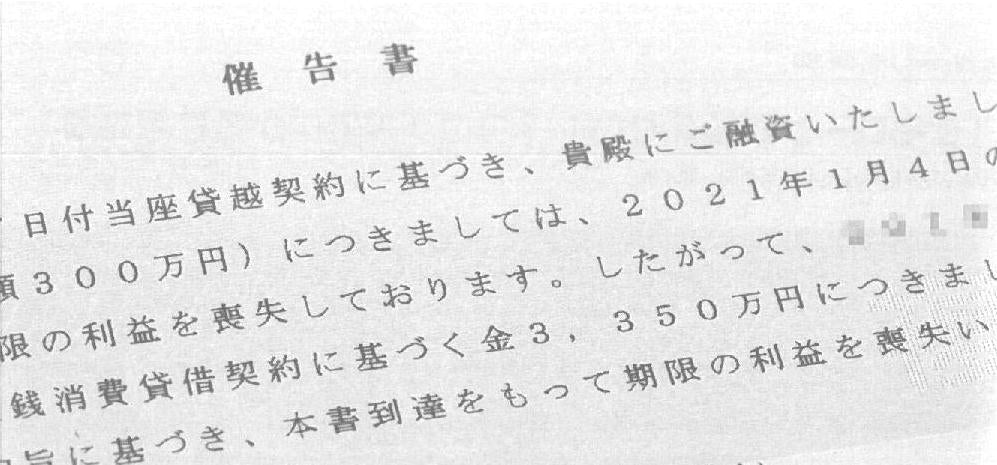 催告書
日付当座貸越契約に基づき、貴殿にご融資いたしまし
額300万円）につきましては、2021年1月4日の
限の利益を喪失しております。したがって、
銭消費貸借契約に基づく金3，350万円につきまし
旨に基づき、本書到達をもって期限の利益を喪失い